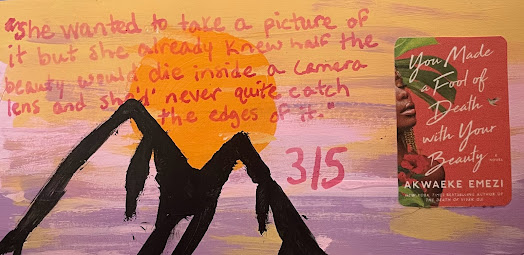 "She wanted to take a picture of
it but she already knew half the
beauty would die inside a camera
lens and she'd never quite catch
the edges of it."
3/5
You Made
a Fool of
Death
with Your
Beauty
a NOVEL
AKWAEKE EMEZI
NEW YORK TIMES BESTSELLING AUTHOR OF
THE DEATH OF VIVEK OJI